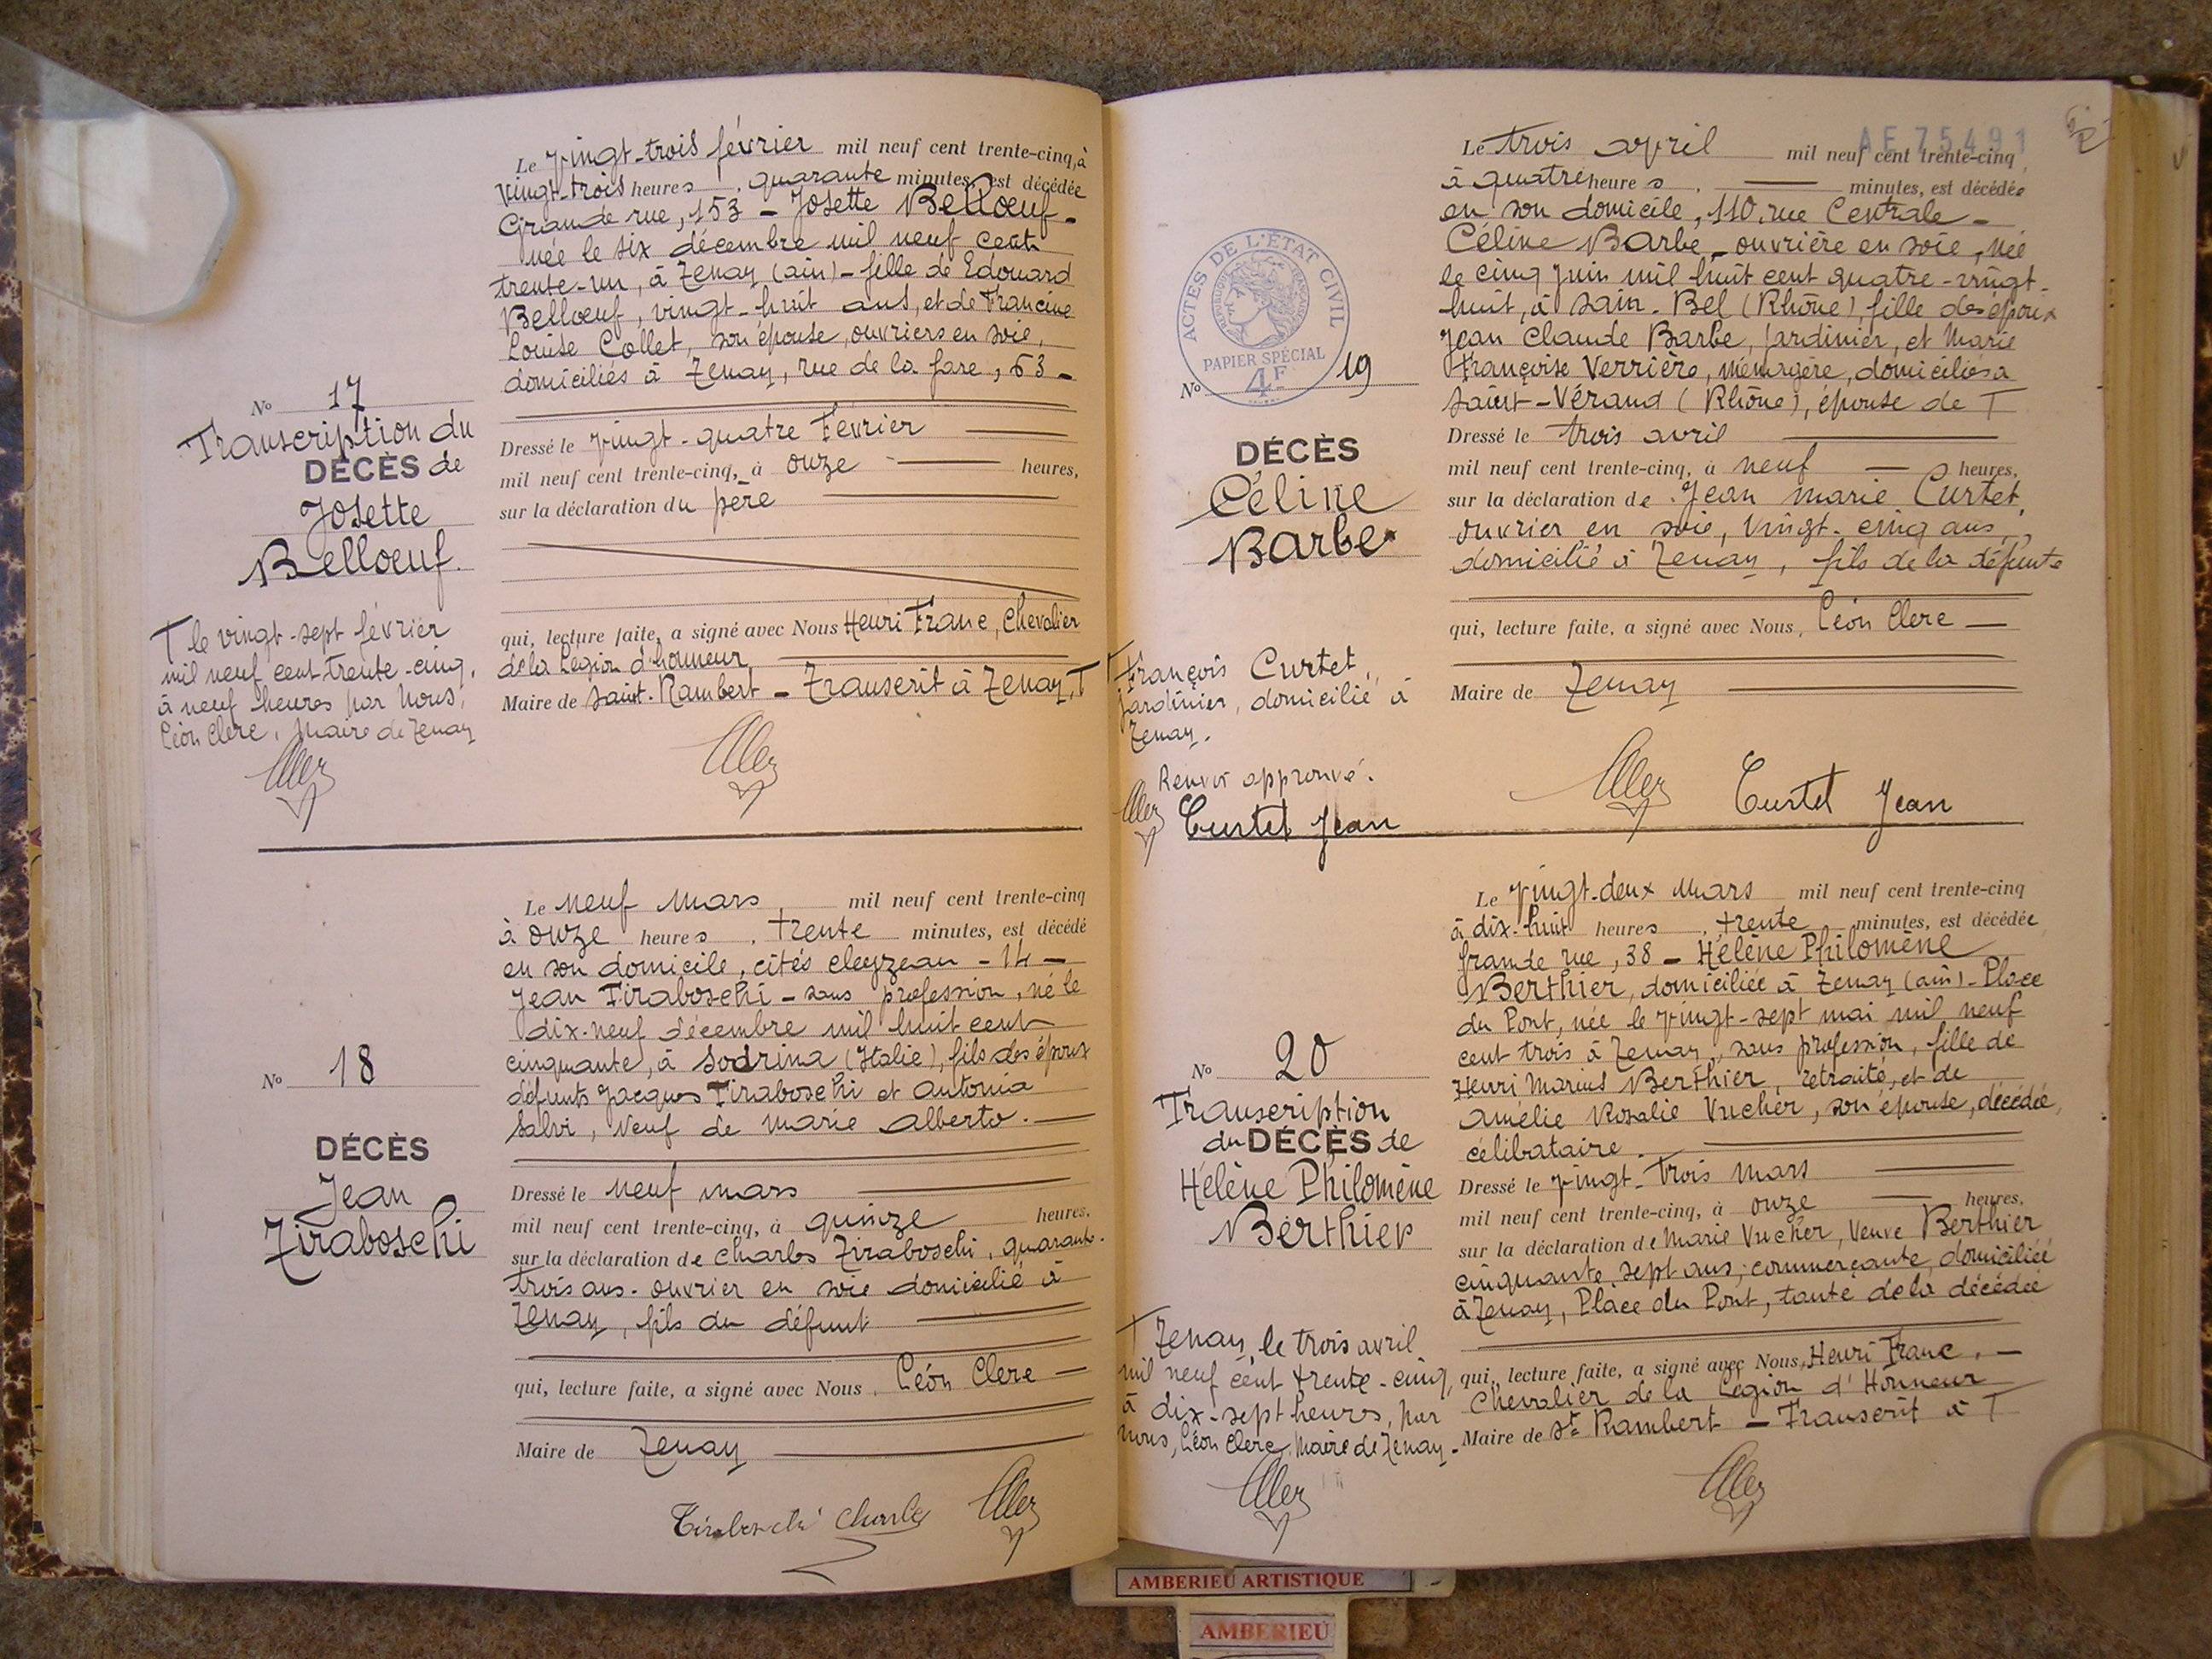 Le vingt-trois février mil neuf cent trente-cinq, à
vingt-trois heures, quarante minutes, est décédée
Grande rue, 153 - Josette Bellœuf -
née le six décembre mil neuf cent
trente-un, à Tenay (ain) - fille de Edouard
Bellœuf, vingt-huit ans, et de Francine
Louise Collet, son épouse, ouvriers en soie,
domiciliés à Tenay, rue de la gare, 63 -
No 17
Transcription du
DÉCÈS de
Josette
Bellœuf.
Dressé le vingt-quatre Février
mil neuf cent trente-cinq, à onze heures,
sur la déclaration du père
qui, lecture faite, a signé avec Nous Henri Franc, Chevalier
de la Légion d'honneur
Maire de Saint-Rambert - Transcrit à Tenay, T
T le vingt-sept février
mil neuf cent trente-cinq,
à neuf heures par Nous,
Léon Clerc, Maire de Tenay
Le neuf mars mil neuf cent trente-cinq
à onze heures, trente minutes, est décédé
en son domicile, cités cleyzeau - 14 -
Jean Tiraboschi - sans profession, né le
dix-neuf décembre mil huit cent
cinquante, à Sodrina (Italie), fils des époux
défunts Jacques Tiraboschi et Antonia
Salvi, Veuf de Marie Alberto. -
No 18
DÉCÈS
Jean
Tiraboschi
Dressé le neuf mars
mil neuf cent trente-cinq, à quinze heures,
sur la déclaration de Charles Tiraboschi, quarante-
trois ans - ouvrier en soie domicilié à
Tenay, fils du défunt
qui, lecture faite, a signé avec Nous, Léon Clerc -
Maire de Tenay
Tiraboschi Charles
AE 75491
Le trois avril mil neuf cent trente-cinq,
à quatre heures, minutes, est décédée
en son domicile, 110, rue Centrale -
Céline Barbe - ouvrière en soie, née
le cinq juin mil huit cent quatre-vingt-
huit, à Sain-Bel (Rhône), fille des époux
Jean Claude Barbe, jardinier, et Marie
Françoise Verrière, ménagère, domiciliés à
Saint-Vérand (Rhône), épouse de T
ACTES DE L'ÉTAT CIVIL
RÉPUBLIQUE FRANÇAISE
PAPIER SPÉCIAL
4F
No 19
DÉCÈS
Céline
Barbe
Dressé le trois avril
mil neuf cent trente-cinq, à neuf heures,
sur la déclaration de Jean Marie Curtet,
ouvrier en soie, vingt-cinq ans,
domicilié à Tenay, fils de la défunte
qui, lecture faite, a signé avec Nous, Léon Clerc -
Maire de Tenay
T François Curtet,
jardinier, domicilié à
Tenay.
Renvoi approuvé.
Curtet Jean
Curtet Jean
Le vingt-deux mars mil neuf cent trente-cinq
à dix-huit heures, trente minutes, est décédée
grande rue, 38 - Hélène Philomène
Berthier, domiciliée à Tenay (ain) - Place
du Pont, née le vingt-sept mai mil neuf
cent trois à Tenay, sans profession, fille de
Henri Marius Berthier, retraité, et de
Amélie Rosalie Vucher, son épouse, décédée,
célibataire.
No 20
Transcription
du DÉCÈS de
Hélène Philomène
Berthier
Dressé le vingt-trois mars
mil neuf cent trente-cinq, à onze heures,
sur la déclaration de Marie Vucher, Veuve Berthier
cinquante-sept ans, commerçante, domiciliée
à Tenay, Place du Pont, tante de la décédée
qui, lecture faite, a signé avec Nous, Henri Franc. -
Chevalier de la Légion d'Honneur
Maire de St Rambert - Transcrit à T
T Tenay, le trois avril
mil neuf cent trente-cinq,
à dix-sept heures, par
nous, Léon Clerc, Maire de Tenay -
AMBERIEU ARTISTIQUE
AMBERIEU